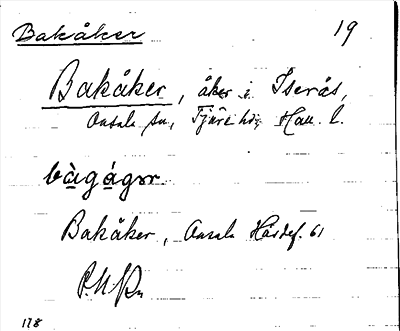 Bakåker 19
Bakåker, åker i Iserås,
Onsala sn, Fjäre hd, Hall. l.
bàgágər
Bakåker, Onsala Hdsdef. 61
118